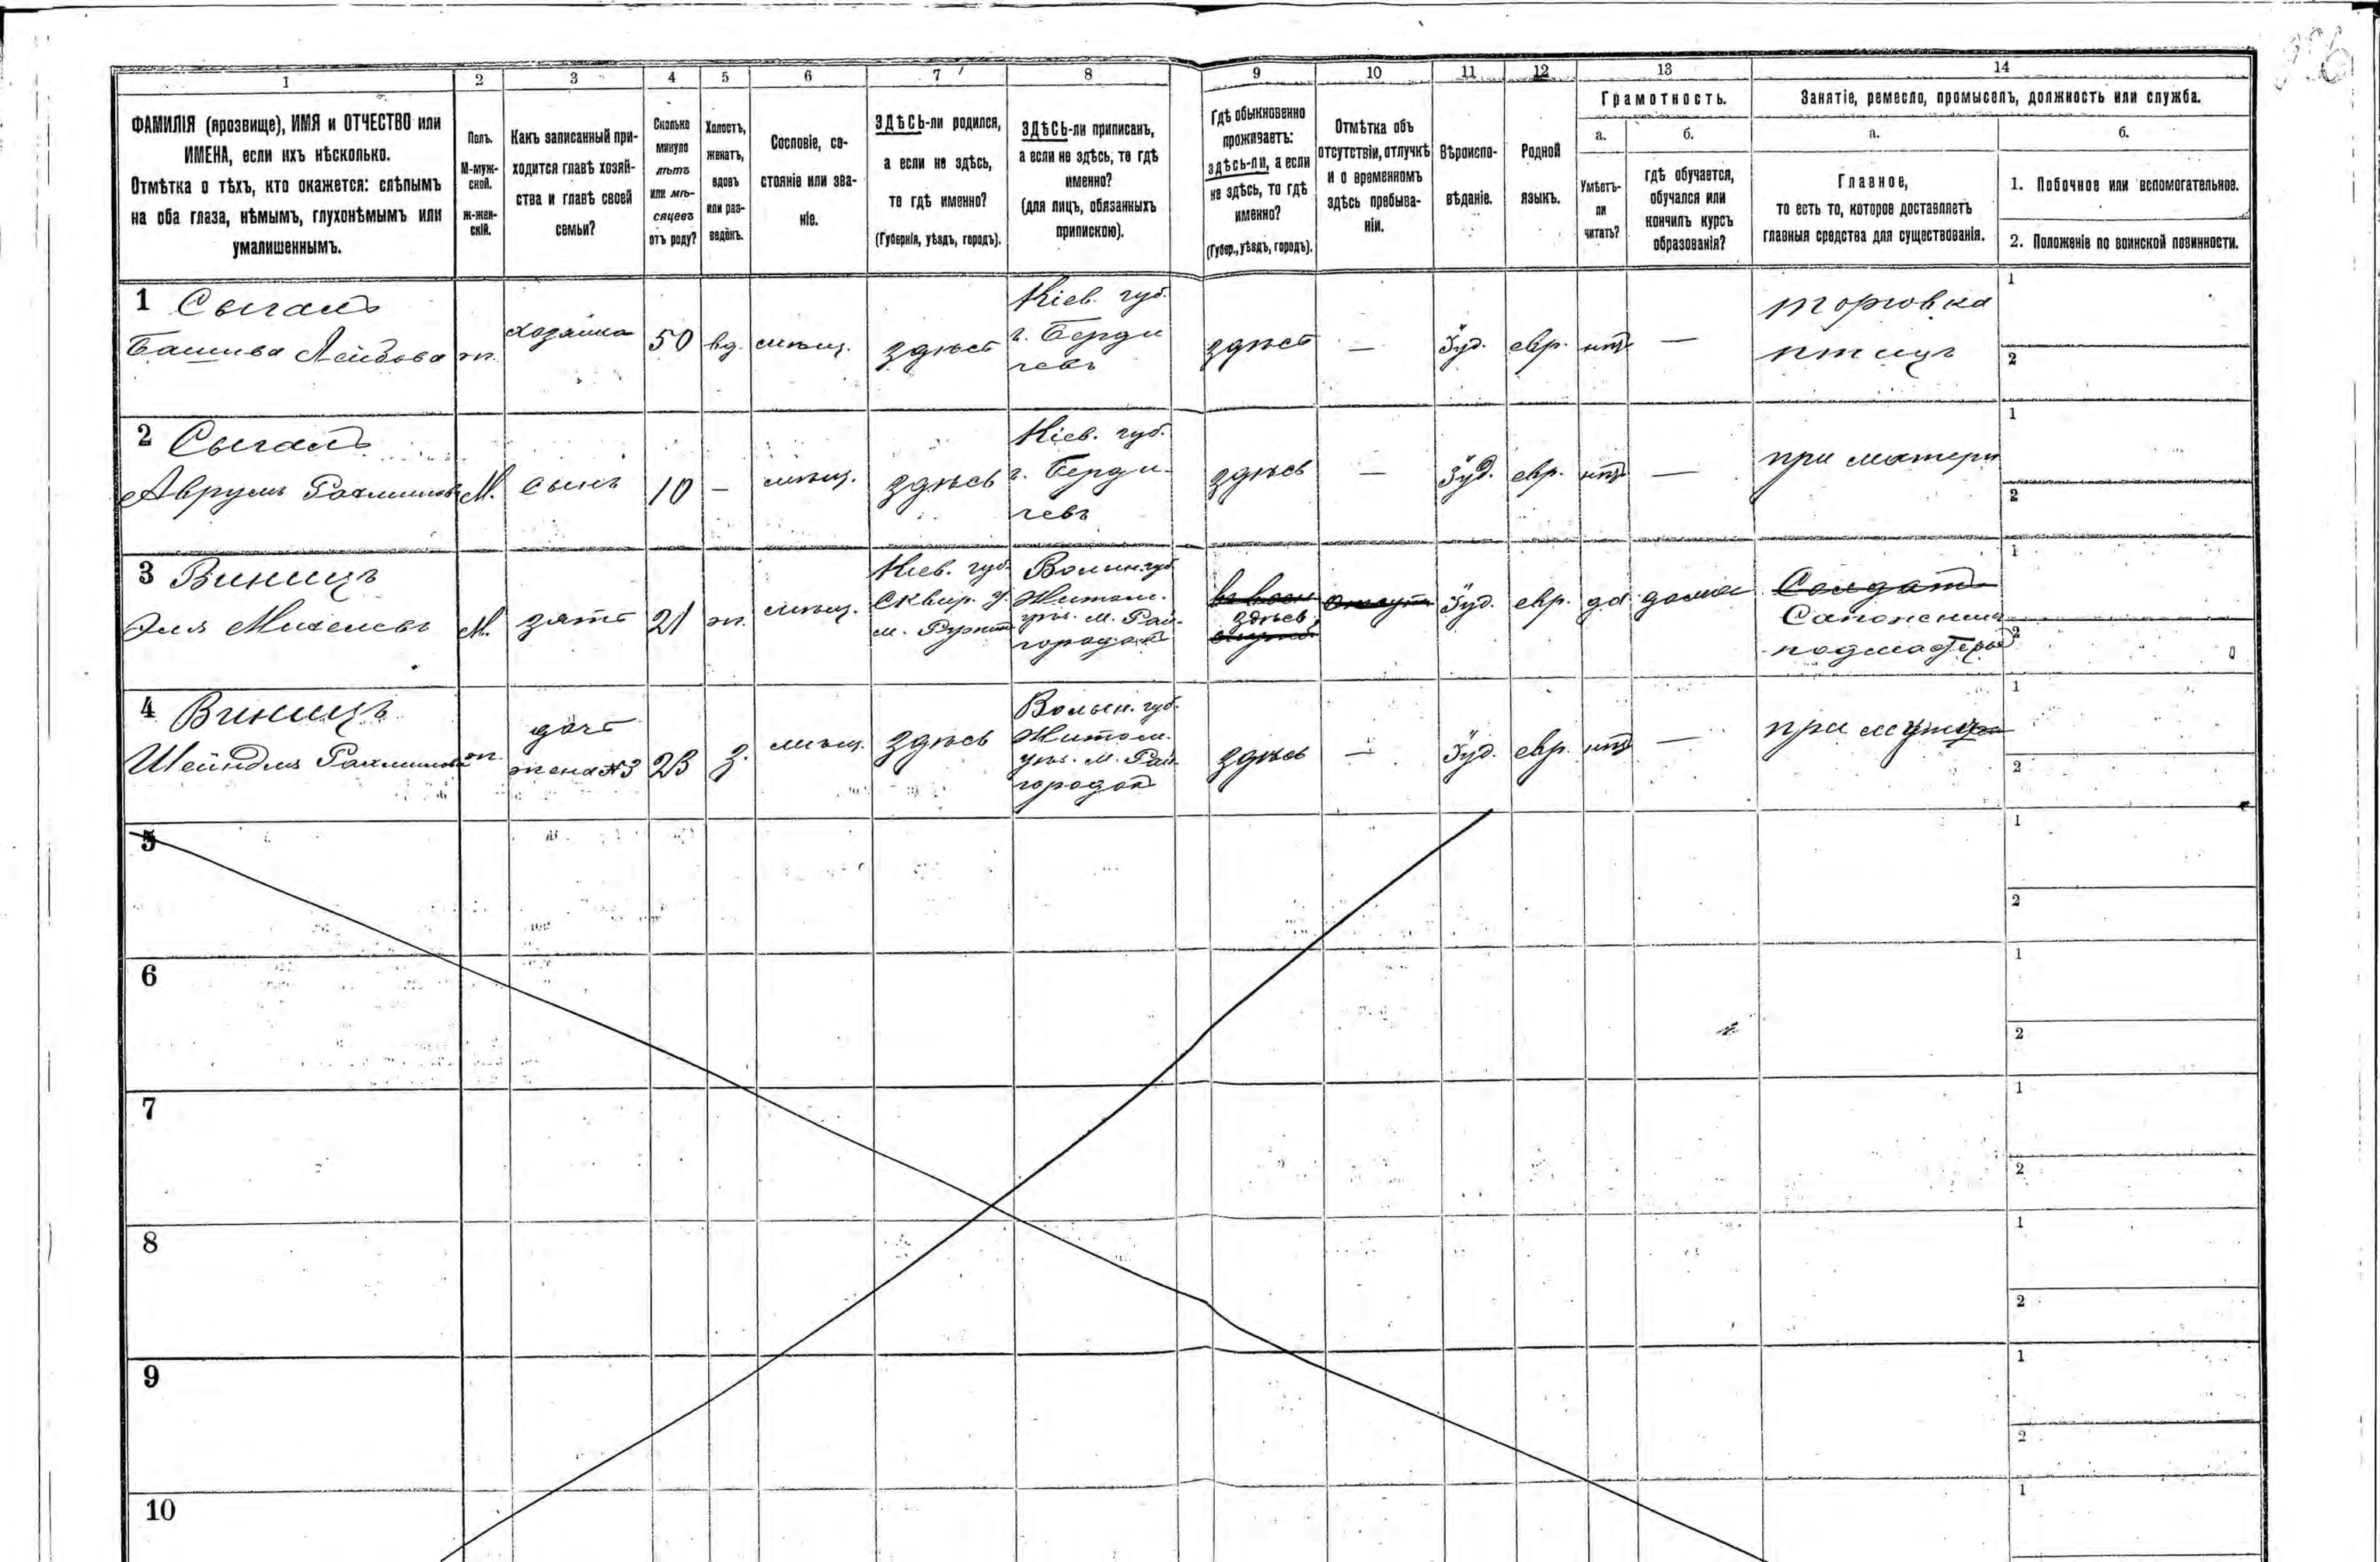 1
2
3
4
5
6
7
8
9
10
11
12
13
14
ФАМИЛІЯ (прозвище), ИМЯ и ОТЧЕСТВО или
ИМЕНА, если ихъ нѣсколько.
Отмѣтка о тѣхъ, кто окажется: слѣпымъ
на оба глаза, нѣмымъ, глухонѣмымъ или
умалишеннымъ.
Полъ.
М-муж-
ской.
Ж-жен-
скій.
Какъ записанный при-
ходится главѣ хозяй-
ства и главѣ своей
семьи?
Сколько
минуло
лѣтъ
или мѣ-
сяцевъ
отъ роду?
Холостъ,
женатъ,
вдовъ
или раз-
веденъ.
Сословіе, со-
стояніе или зва-
ніе.
ЗДѢСЬ-ли родился,
а если не здѣсь,
то гдѣ именно?
(Губернія, уѣздъ, городъ).
ЗДѢСЬ-ли приписанъ,
а если не здѣсь, то гдѣ
именно?
(для лицъ, обязанныхъ
припискою).
Гдѣ обыкновенно
проживаетъ:
здѣсь-ли, а если
не здѣсь, то гдѣ
именно?
(Губер., уѣздъ, городъ).
Отмѣтка объ
отсутствіи, отлучкѣ
и о временномъ
здѣсь пребыва-
ніи.
Вѣроиспо-
вѣданіе.
Родной
языкъ.
Грамотность.
а.
Умѣетъ-
ли
читать?
б.
гдѣ обучается,
обучался или
кончилъ курсъ
образованія?
Занятіе, ремесло, промыселъ, должность или служба.
а.
Главное,
то есть то, которое доставляетъ
главныя средства для существованія.
б.
1. Побочное или вспомогательное.
2. Положеніе по воинской повинности.
1 Сыгалъ
Башива Лейбова
ж.
хозяйка
50
вд.
мѣщ.
здѣсь
Кіев. губ.
г. Берди
чевъ
здѣсь
—
Іуд.
евр.
нѣтъ
—
торговка
птицъ
1
2
2 Сыгалъ
Аврумъ Рахмиловъ
М.
сынъ
10
—
мѣщ.
здѣсь
Кіев. губ.
г. Берди-
чевъ
здѣсь
—
Іуд.
евр.
нѣтъ
—
при матери
1
2
3 Виницъ
Эля Михелевъ
М.
зять
21
ж.
мѣщ.
Кіев. губ.
Сквир. у.
м. Ружинъ
Волын. губ
Житом.
уѣз. м. Рай-
городокъ
здѣсь
отсут
Іуд.
евр.
да
дома
Солдатъ
Сапожный
подмастерье
1
2
4 Виницъ
Шейндля Рахмилова
ж.
дочь
жена №3
23
з.
мѣщ.
здѣсь
Волын. губ.
Житом.
уѣз. м. Рай-
городок
здѣсь
—
Іуд.
евр.
нѣтъ
—
при мужѣ
1
2
5
1
2
6
1
2
7
1
2
8
1
2
9
1
2
10
1